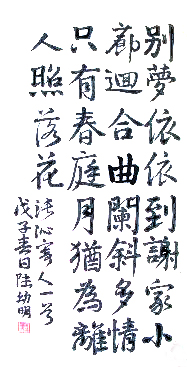 別夢依依到謝家小
廊迴合曲闌斜多情
只有春庭月猶為離
人照落花
张泌寄人一首
戊子春日陆幼明